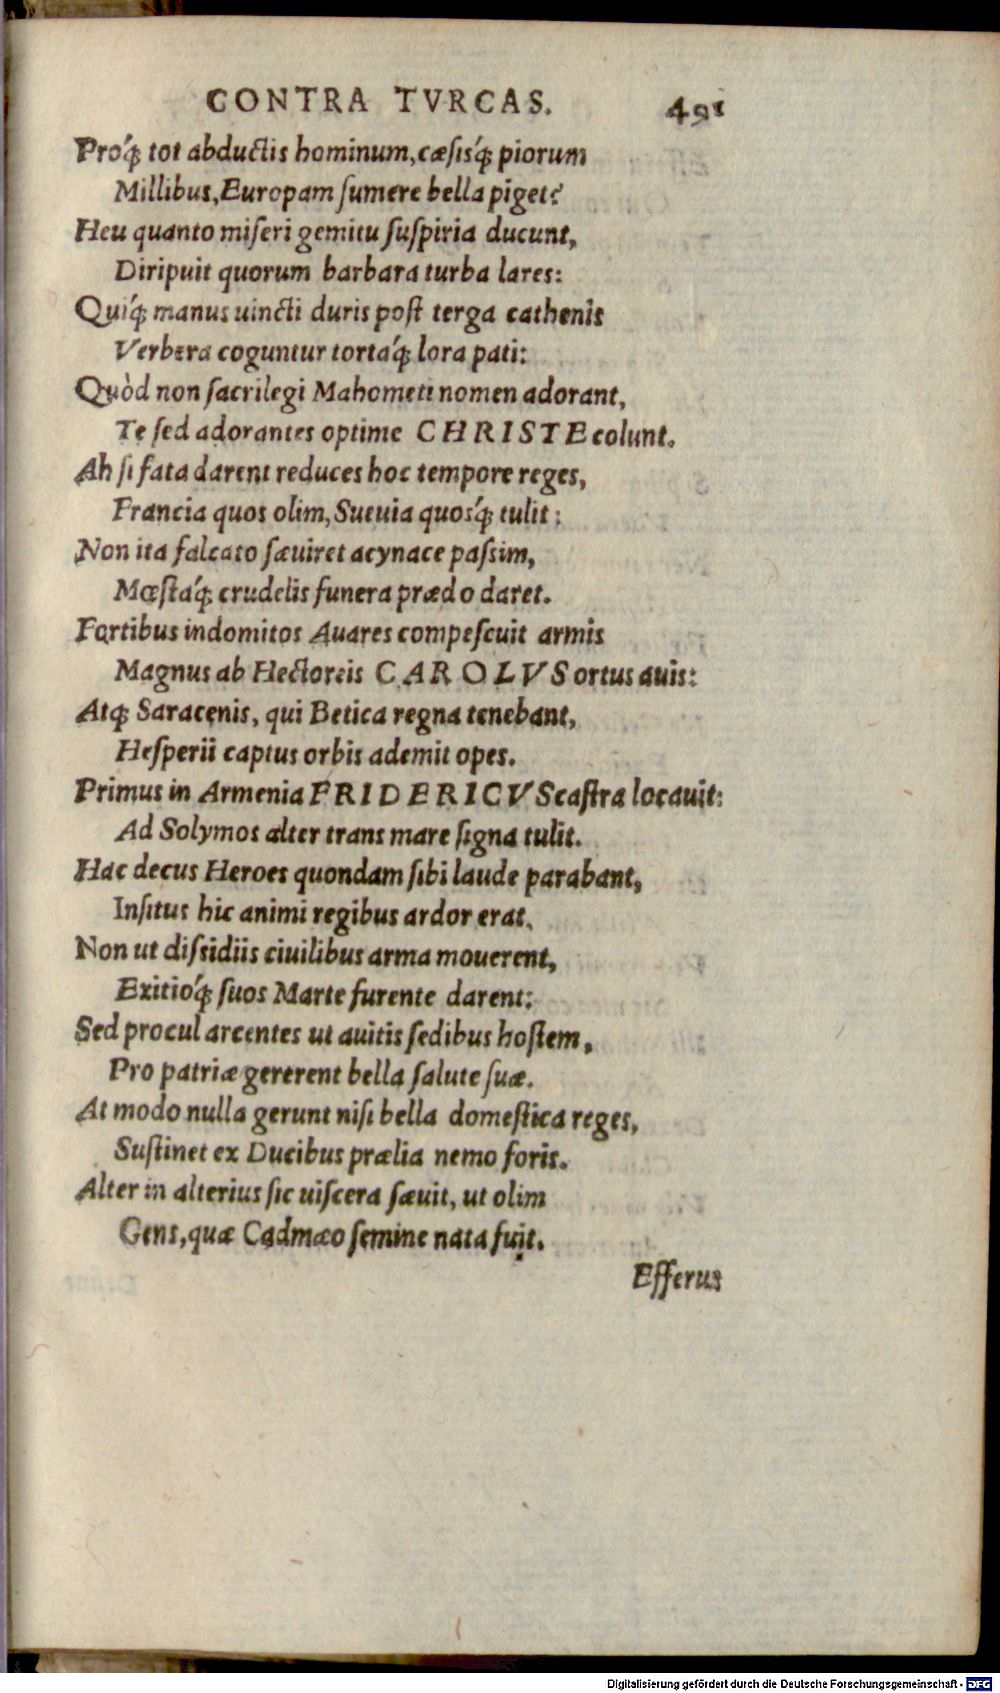 CONTRA TVRCAS. 491
Pro'q; tot abductis hominum, cæsis'q; piorum
Millibus, Europam ſumere bella piget?
Heu quanto miſeri gemitu ſuſpiria ducunt,
Diripuit quorum barbara turba lares:
Qui'q; manus uincti duris poſt terga cathenis
Verbera coguntur torta'q; lora pati:
Quòd non ſacrilegi Mahometi nomen adorant,
Te ſed adorantes optime CHRISTE colunt.
Ah ſi fata darent reduces hoc tempore reges,
Francia quos olim, Sueuia quos'q; tulit:
Non ita falcato ſæuiret acynace paſsim,
Mœſta'q; crudelis funera prædo daret.
Fortibus indomitos Auares compeſcuit armis
Magnus ab Hectoreis CAROLVS ortus auis:
Atq; Saracenis, qui Betica regna tenebant,
Heſperii captus orbis ademit opes.
Primus in Armenia FRIDERICVS caſtra locauit:
Ad Solymos alter trans mare ſigna tulit.
Hac decus Heroes quondam ſibi laude parabant,
Inſitus hic animi regibus ardor erat.
Non ut diſsidiis ciuilibus arma mouerent,
Exitio'q; ſuos Marte furente darent:
Sed procul arcentes ut auitis ſedibus hoſtem,
Pro patriæ gererent bella ſalute ſuæ.
At modo nulla gerunt niſi bella domeſtica reges,
Suſtinet ex Ducibus prælia nemo foris.
Alter in alterius ſic uiſcera ſæuit, ut olim
Gens, quæ Cadmæo ſemine nata fuit.
Efferus
Digitalisierung gefördert durch die Deutsche Forschungsgemeinschaft - DFG